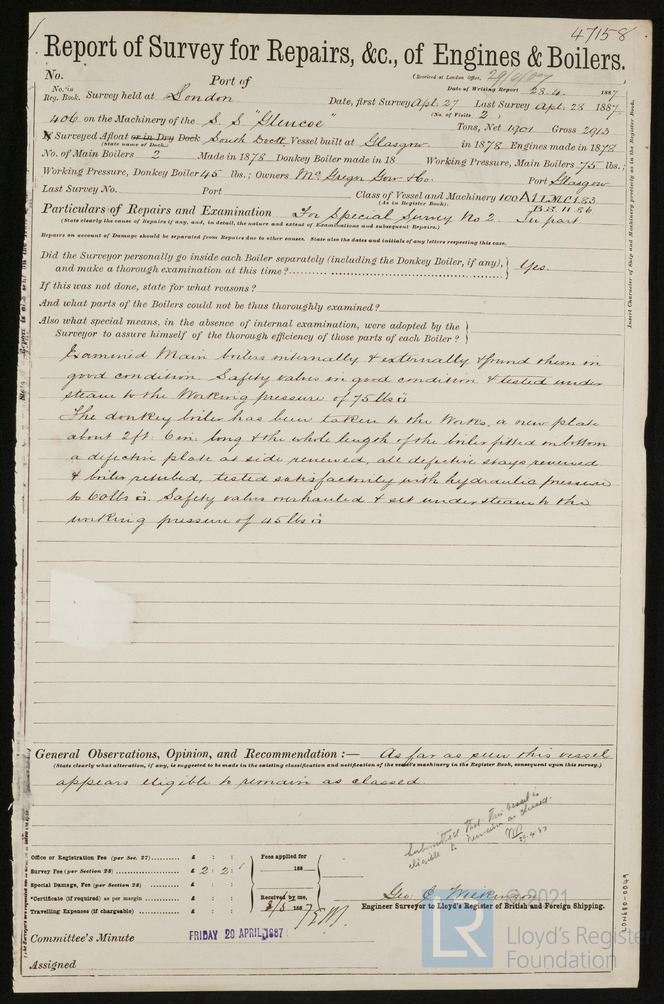 47158
Report of Survey for Repairs, &c., of Engines & Boilers.
(Received at London Office,
No. Port of
Date of Writing Report 28.4. 1887
No. in Reg. Book. Survey held at London Date, first Survey Apl. 27 Last Survey Apl. 28 1887
(No. of Visits 2.)
406 on the Machinery of the S.S "Glencoe" Tons, Net 1901 Gross 2913
Surveyed Afloat or in Dry Dock South Dock Vessel built at Glasgow in 1878 Engines made in 1878
(State name of Dock.)
No. of Main Boilers 2 Made in 1878 Donkey Boiler made in 18 Working Pressure, Main Boilers 75 lbs.;
Working Pressure, Donkey Boiler 45 lbs.; Owners McGregor Gow & Co. Port Glasgow
Last Survey No. Port Class of Vessel and Machinery 100A1 LMC 1.83
(As in Register Book). B.B. 11.86
Particulars of Repairs and Examination For Special Survey No 2. In part
(State clearly the cause of Repairs if any, and, in detail, the nature and extent of Examinations and subsequent Repairs.)
Repairs on account of Damage should be separated from Repairs due to other causes. State also the dates and initials of any letters respecting this case.
Did the Surveyor personally go inside each Boiler separately (including the Donkey Boiler, if any),
and make a thorough examination at this time? Yes.
If this was not done, state for what reasons?
And what parts of the Boilers could not be thus thoroughly examined?
Also what special means, in the absence of internal examination, were adopted by the
Surveyor to assure himself of the thorough efficiency of those parts of each Boiler?
Examined Main boilers internally & externally & found them in
good condition. Safety valves in good condition & tested under
steam to the Working pressure of 75 lbs □"
The donkey boiler has been taken to the Works, a new plate
about 2ft. 6in long & the whole length of the boiler fitted on bottom
a defective plate at side renewed, all defective stays renewed
& boiler retubed, tested satisfactorily with hydraulic pressure
to 60lbs □". Safety valves overhauled & set under steam to the
working pressure of 45 lbs □"
Insert Character of Ship and Machinery precisely as in the Register Book.
General Observations, Opinion, and Recommendation :— As far as seen this vessel
(State clearly what alteration, if any, is suggested to be made in the existing classification and notification of the vessel's machinery in the Register Book, consequent upon this survey.)
appears eligible to remain as classed
Submitted that this vessel is
eligible to remain as classed.
29.4.87
Office or Registration Fee (per Sec. 27) £ : :
Survey Fee (per Section 28) £ 2 : 2 :
Special Damage, Fee (per Section 28) £ : :
*Certificate (if required) as per margin £ : :
Travelling Expenses (if chargeable) £ : :
Fees applied for
188
Received by me,
188
Geo. C. Wilkinson
Engineer Surveyor to Lloyd's Register of British and Foreign Shipping.
Committee's Minute FRIDAY 29 APRIL 1887
Assigned
© 2021
LR
Lloyd's Register
Foundation
LON680-0049